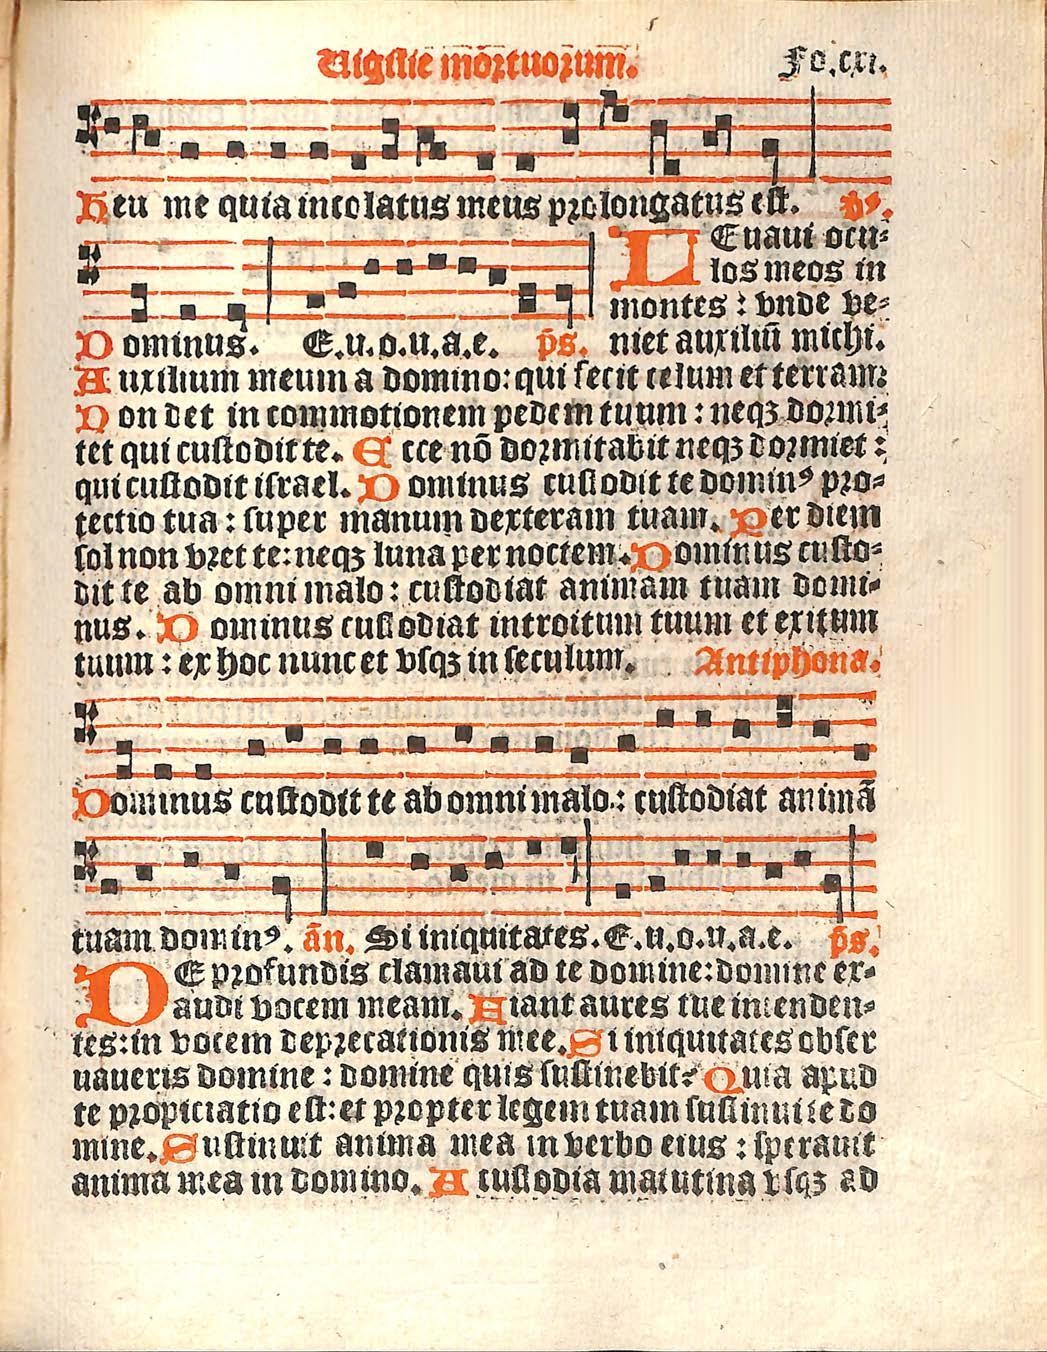 Vigilie mōrtuorum. Fo.cxi.
Heu me quia incolatus meus prolongatus est. ps.
LEuaui ocu-
los meos in
montes : vnde ve-
Dominus. E.u.o.u.a.e. p̄s. niet auxiliū michi.
Auxilium meum a domino: qui fecit celum et terram:
Non det in commotionem pedem tuum : neqꝫ dormi-
tet qui custodit te. Ecce nō dormitabit neqꝫ dormiet :
qui custodit israel. Dominus custodit te dominꝰ pro-
tectio tua : super manum dexteram tuam. Per diem
sol non vret te: neqꝫ luna per noctem. Dominus custo-
dit te ab omni malo : custodiat animam tuam domi-
nus. Dominus custodiat introitum tuum et exitum
tuum : ex hoc nunc et vsqꝫ in seculum. Antiphona.
Dominus custodit te ab omni malo : custodiat animā
tuam dominꝰ. ān. Si iniquitates. E.u.o.u.a.e. p̄s.
DE profundis clamaui ad te domine: domine ex-
audi vocem meam. Fiant aures tue intenden-
tes: in vocem deprecationis mee. Si iniquitates obser
uaueris domine : domine quis sustinebit? Quia apud
te propiciatio est: et propter legem tuam sustinui te do
mine. Sustinuit anima mea in verbo eius : sperauit
anima mea in domino. A custodia matutina vsqꝫ ad